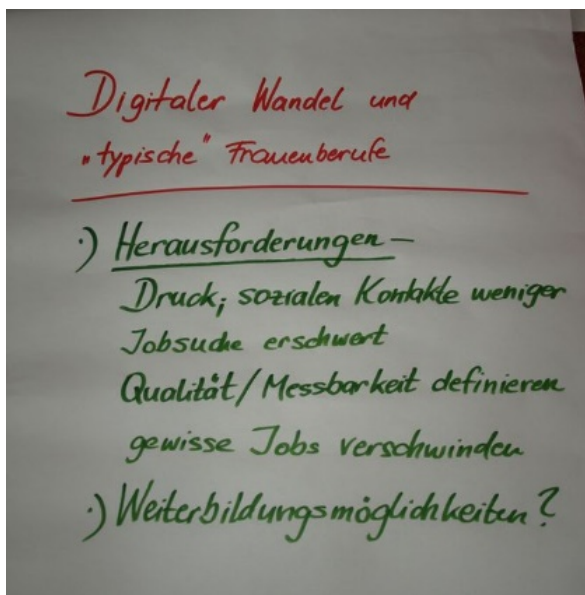 Digitaler Wandel und
"typische" Frauenberufe
·) Herausforderungen –
Druck; sozialen Kontakte weniger
Jobsuche erschwert
Qualität/Messbarkeit definieren
gewisse Jobs verschwinden
·) Weiterbildungsmöglichkeiten?